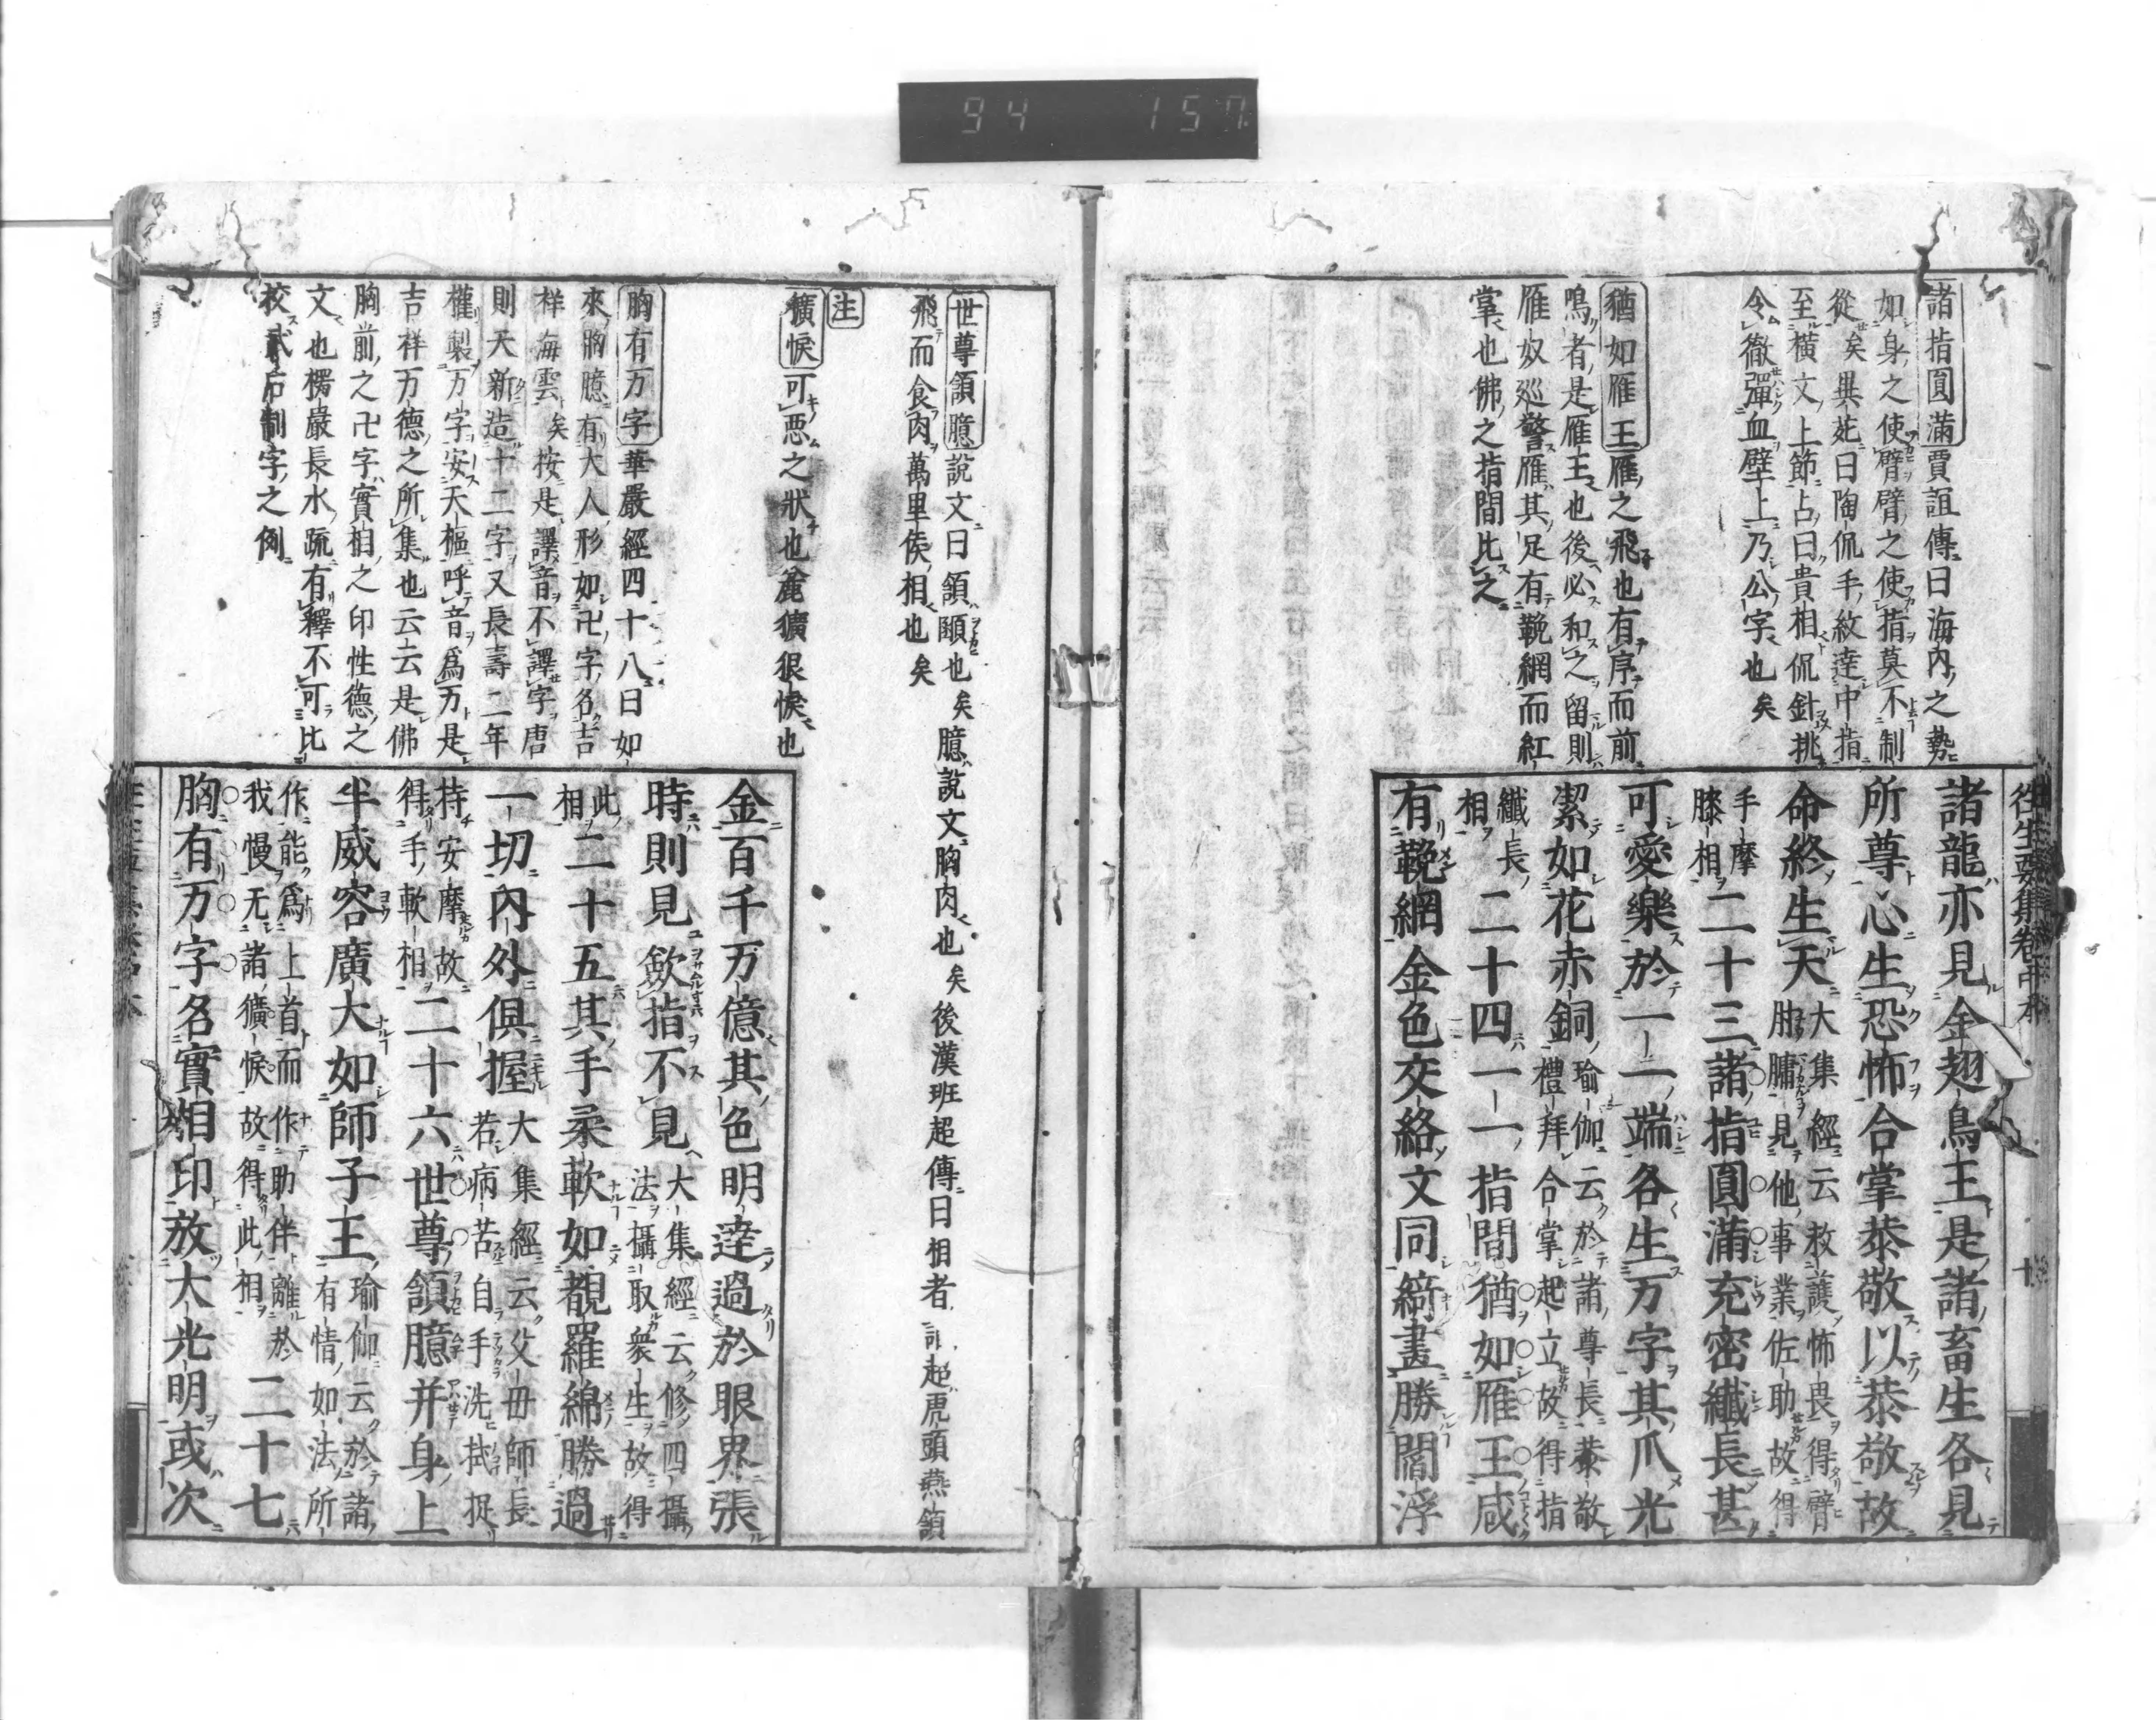 諸指圓滿賈誼傳曰海內之勢
如身之使臂臂之使指莫不制
從矣異苑曰陶侃手紋達中指
至橫文上節占曰貴相侃針挑
令徹彈血壁上乃公字也矣
猶如雁王雁之飛也有序而前
鳴者是雁王也後必和之留則
雁奴巡警雁其足有鞔網而紅
掌也佛之指間比之
往生要集卷中本
十
諸龍亦見金翅鳥王是諸畜生各見
所尊心生恐怖合掌恭敬以恭敬故
命終生天大集經云救護怖畏得臂
肘𦟛見他事業佐助故得
手摩
膝相二十三諸指圓滿充密纖長甚
可愛樂於一一端各生万字其爪光
潔如花赤銅瑜伽云於諸尊長恭敬
禮拜合掌起立故得指
纖長
相二十四一一指間猶如雁王咸
有鞔網金色交絡文同綺畫勝閻浮
世尊頷臆說文曰頷頤也矣臆說文胸肉也矣後漢班超傳曰相者
飛而食肉萬里侯相也矣
注
獷悷可惡之狀也麁獷很悷也
胸有万字華嚴經四十八曰如
來胸臆有大人形如卍字名吉
祥海雲矣按是譯音不譯字唐
則天新造十二字又長壽二年
權製万字安天樞呼音爲万是
吉祥万德之所集也云云是佛
胸前之卍字實相之印性德之
文也楞嚴長水疏有釋不可比
校武后制字之例
金百千万億其色明達過於眼界張
時則見歛指不見大集經云修四攝
法攝取衆生故得
此
相二十五其手柔軟如覩羅綿勝過
一切內外俱握大集經云父母師長
若病苦自手洗拭捉
持安摩故
得手軟相二十六世尊頷臆并身上
半威容廣大如師子王瑜伽云於諸
有情如法所
作能爲上首而作助伴離於
我慢无諸獷悷故得此相二十七
胸有万字名實相印放大光明或次